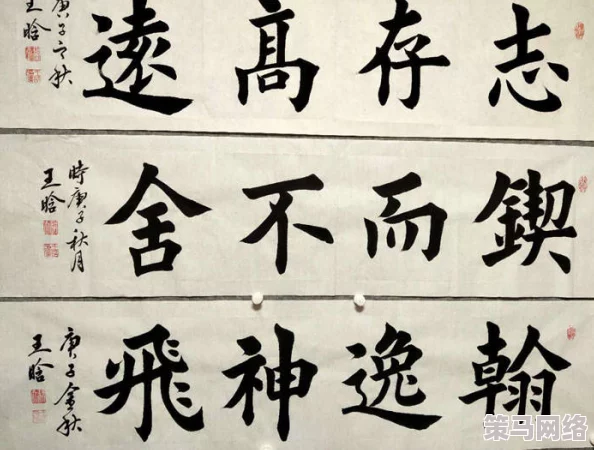 志存高遠
庚子之秋
王晗
鍥而不舍
時庚子秋月
王晗
翰逸神飛
庚子金秋
王晗
策马网络